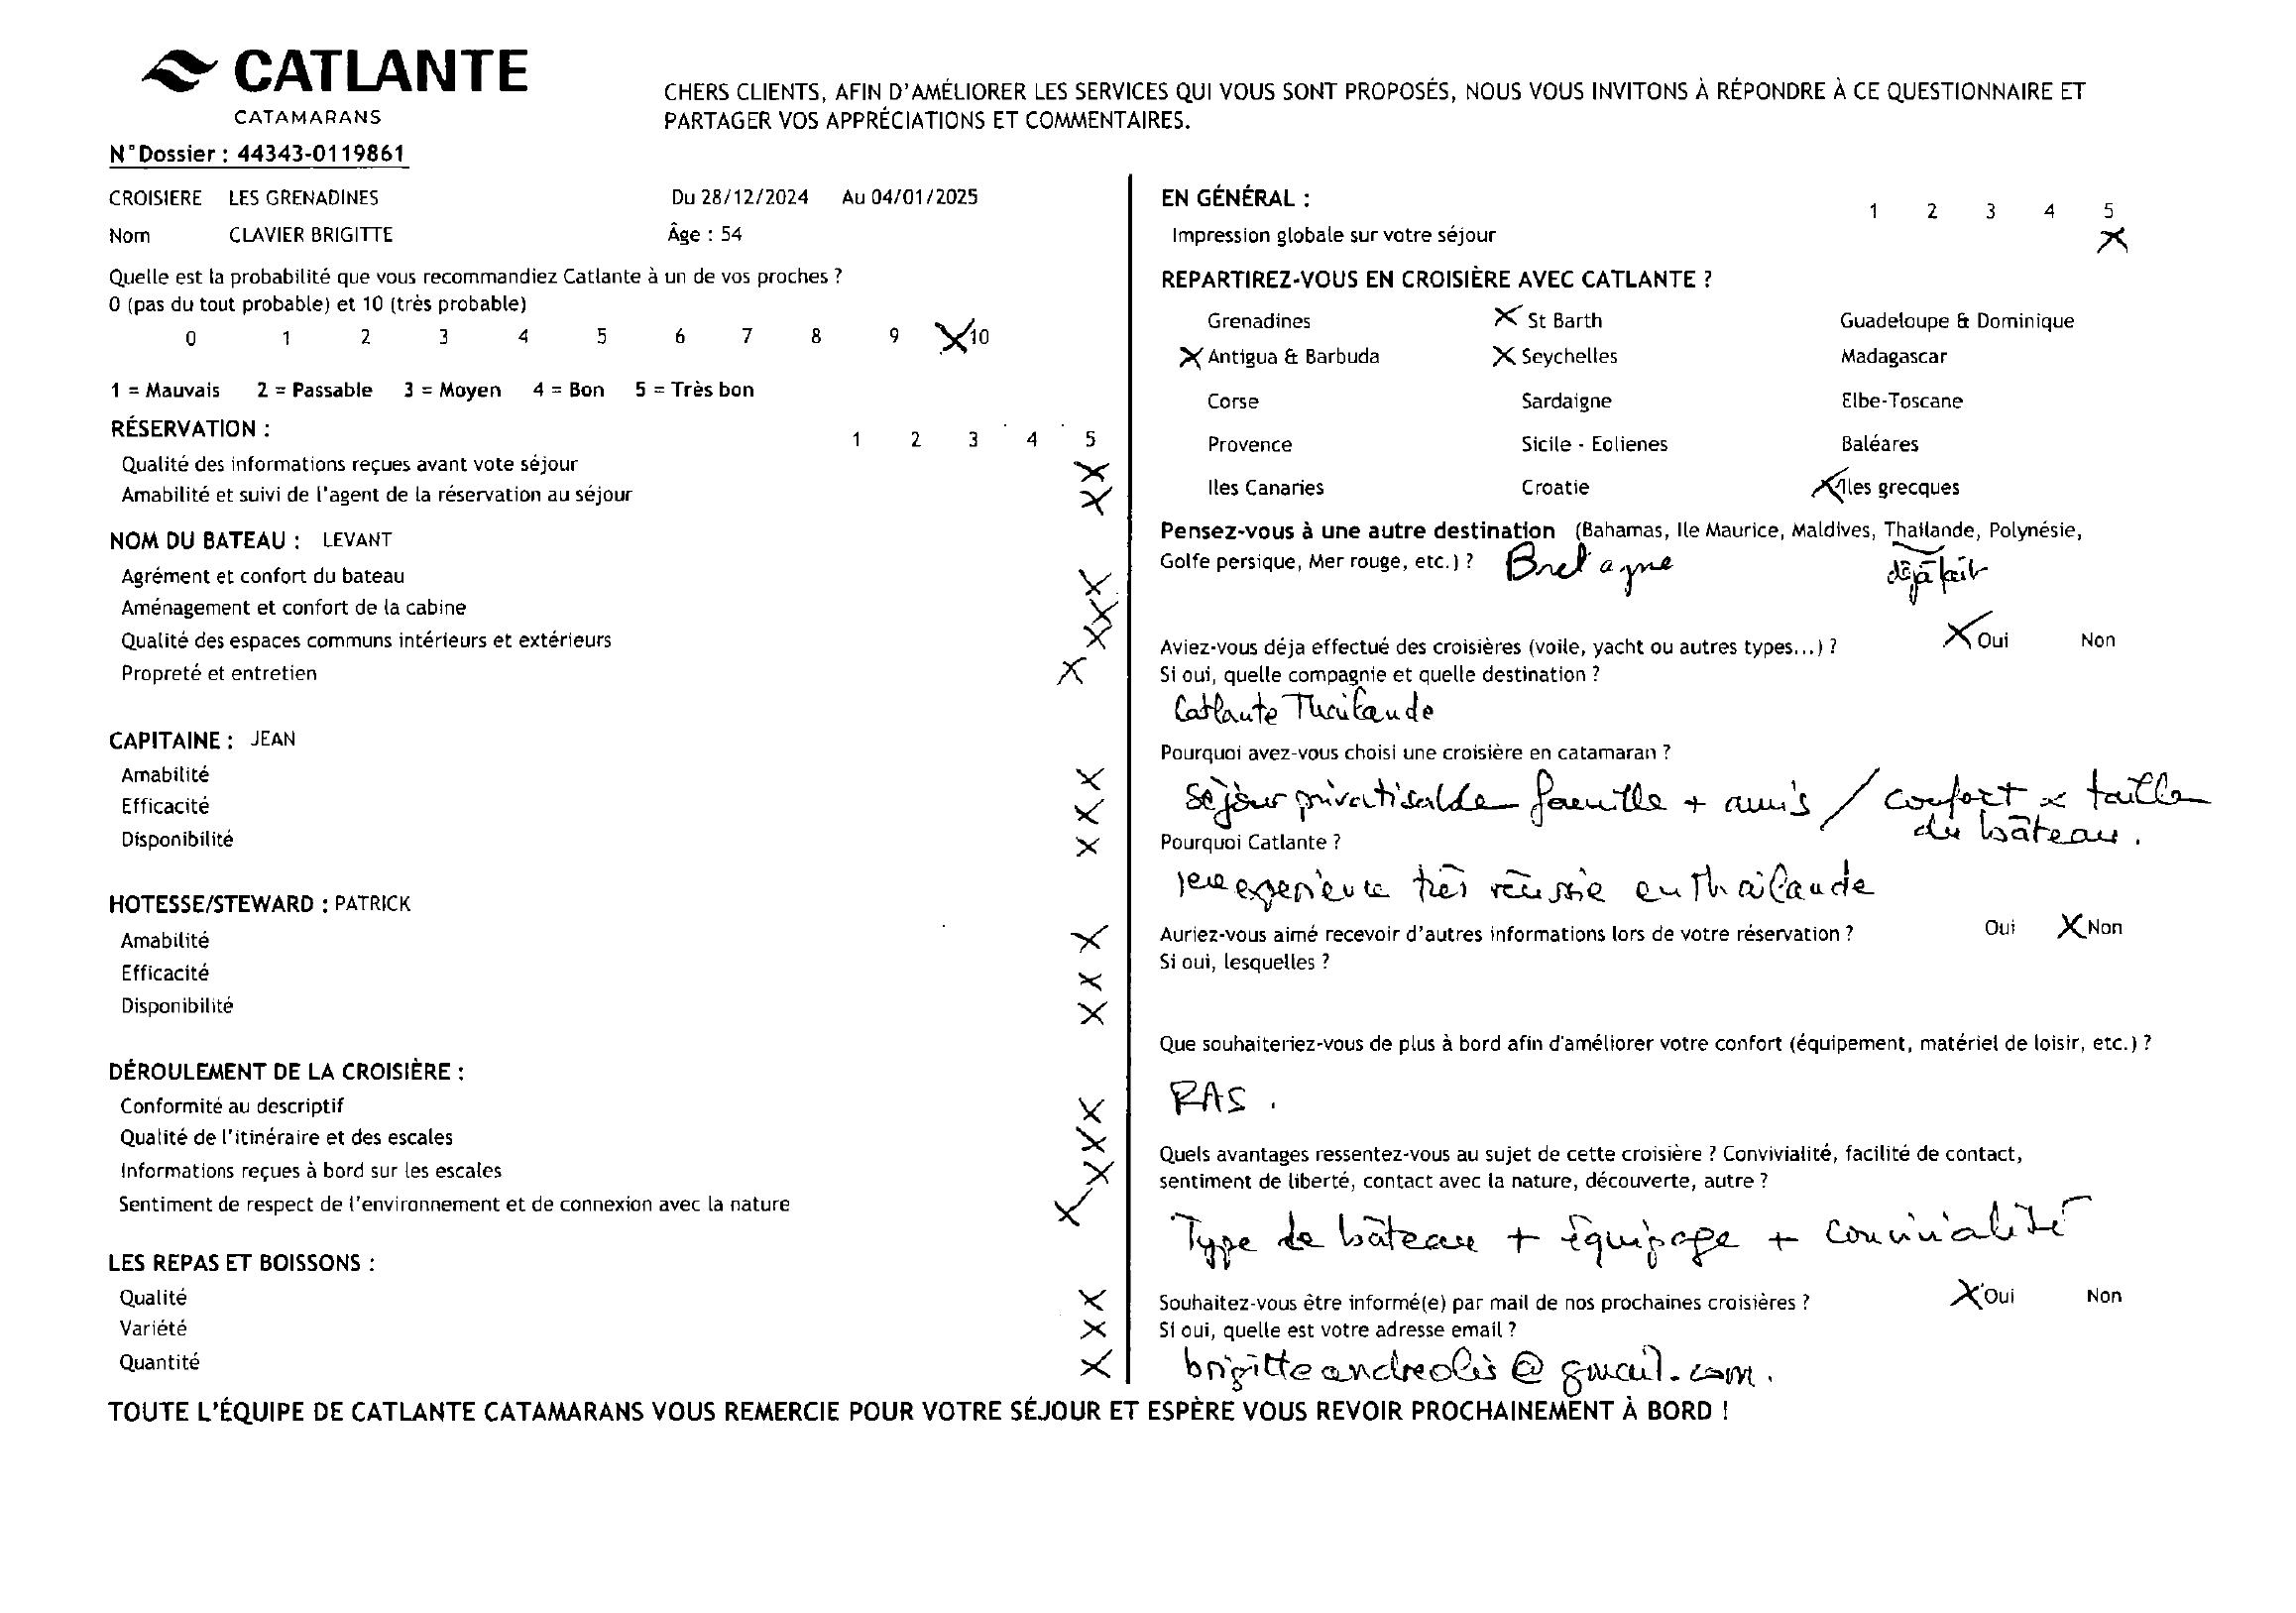 CATLANTE
CATAMARANS
CHERS CLIENTS, AFIN D'AMÉLIORER LES SERVICES QUI VOUS SONT PROPOSÉS, NOUS VOUS INVITONS À RÉPONDRE À CE QUESTIONNAIRE ET
PARTAGER VOS APPRÉCIATIONS ET COMMENTAIRES.
N°Dossier : 44343-0119861
CROISIERE LES GRENADINES Du 28/12/2024 Au 04/01/2025
Nom CLAVIER BRIGITTE Âge : 54
Quelle est la probabilité que vous recommandiez Catlante à un de vos proches ?
0 (pas du tout probable) et 10 (très probable)
0 1 2 3 4 5 6 7 8 9 X 10
1 = Mauvais 2 = Passable 3 = Moyen 4 = Bon 5 = Très bon
RÉSERVATION :
1 2 3 4 5
Qualité des informations reçues avant vote séjour X
Amabilité et suivi de l'agent de la réservation au séjour X
NOM DU BATEAU : LEVANT
Agrément et confort du bateau X
Aménagement et confort de la cabine X
Qualité des espaces communs intérieurs et extérieurs X
Propreté et entretien X
CAPITAINE : JEAN
Amabilité X
Efficacité X
Disponibilité X
HOTESSE/STEWARD : PATRICK
Amabilité X
Efficacité X
Disponibilité X
DÉROULEMENT DE LA CROISIÈRE :
Conformité au descriptif X
Qualité de l'itinéraire et des escales X
Informations reçues à bord sur les escales X
Sentiment de respect de l'environnement et de connexion avec la nature X
LES REPAS ET BOISSONS :
Qualité X
Variété X
Quantité X
EN GÉNÉRAL :
1 2 3 4 5
Impression globale sur votre séjour X
REPARTIREZ-VOUS EN CROISIÈRE AVEC CATLANTE ?
Grenadines X St Barth Guadeloupe & Dominique
X Antigua & Barbuda X Seychelles Madagascar
Corse Sardaigne Elbe-Toscane
Provence Sicile - Eolienes Baléares
Iles Canaries Croatie X Iles grecques
Pensez-vous à une autre destination (Bahamas, Ile Maurice, Maldives, Thaïlande, Polynésie,
Golfe persique, Mer rouge, etc.) ? Bretagne déjà fait
Aviez-vous déja effectué des croisières (voile, yacht ou autres types...) ? X Oui Non
Si oui, quelle compagnie et quelle destination ?
Catlante Thailande
Pourquoi avez-vous choisi une croisière en catamaran ?
Séjour privatisable famille + amis / confort & taille
du bâteau.
Pourquoi Catlante ?
1ere experience très réussie en Thaïlande
Auriez-vous aimé recevoir d'autres informations lors de votre réservation ? Oui X Non
Si oui, lesquelles ?
Que souhaiteriez-vous de plus à bord afin d'améliorer votre confort (équipement, matériel de loisir, etc.) ?
RAS.
Quels avantages ressentez-vous au sujet de cette croisière ? Convivialité, facilité de contact,
sentiment de liberté, contact avec la nature, découverte, autre ?
Type de bâteau + équipage + convivialité
Souhaitez-vous être informé(e) par mail de nos prochaines croisières ? X Oui Non
Si oui, quelle est votre adresse email ?
brigitteandreolis@gmail.com.
TOUTE L'ÉQUIPE DE CATLANTE CATAMARANS VOUS REMERCIE POUR VOTRE SÉJOUR ET ESPÈRE VOUS REVOIR PROCHAINEMENT À BORD !